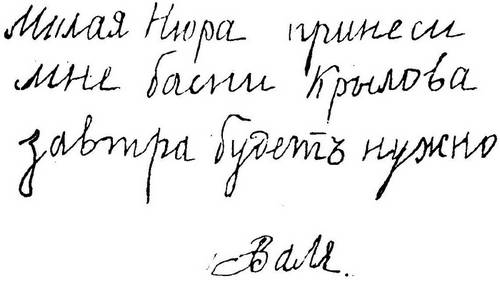 Милая Нюра принеси
мне басни Крылова
завтра будетъ нужно
Валя.